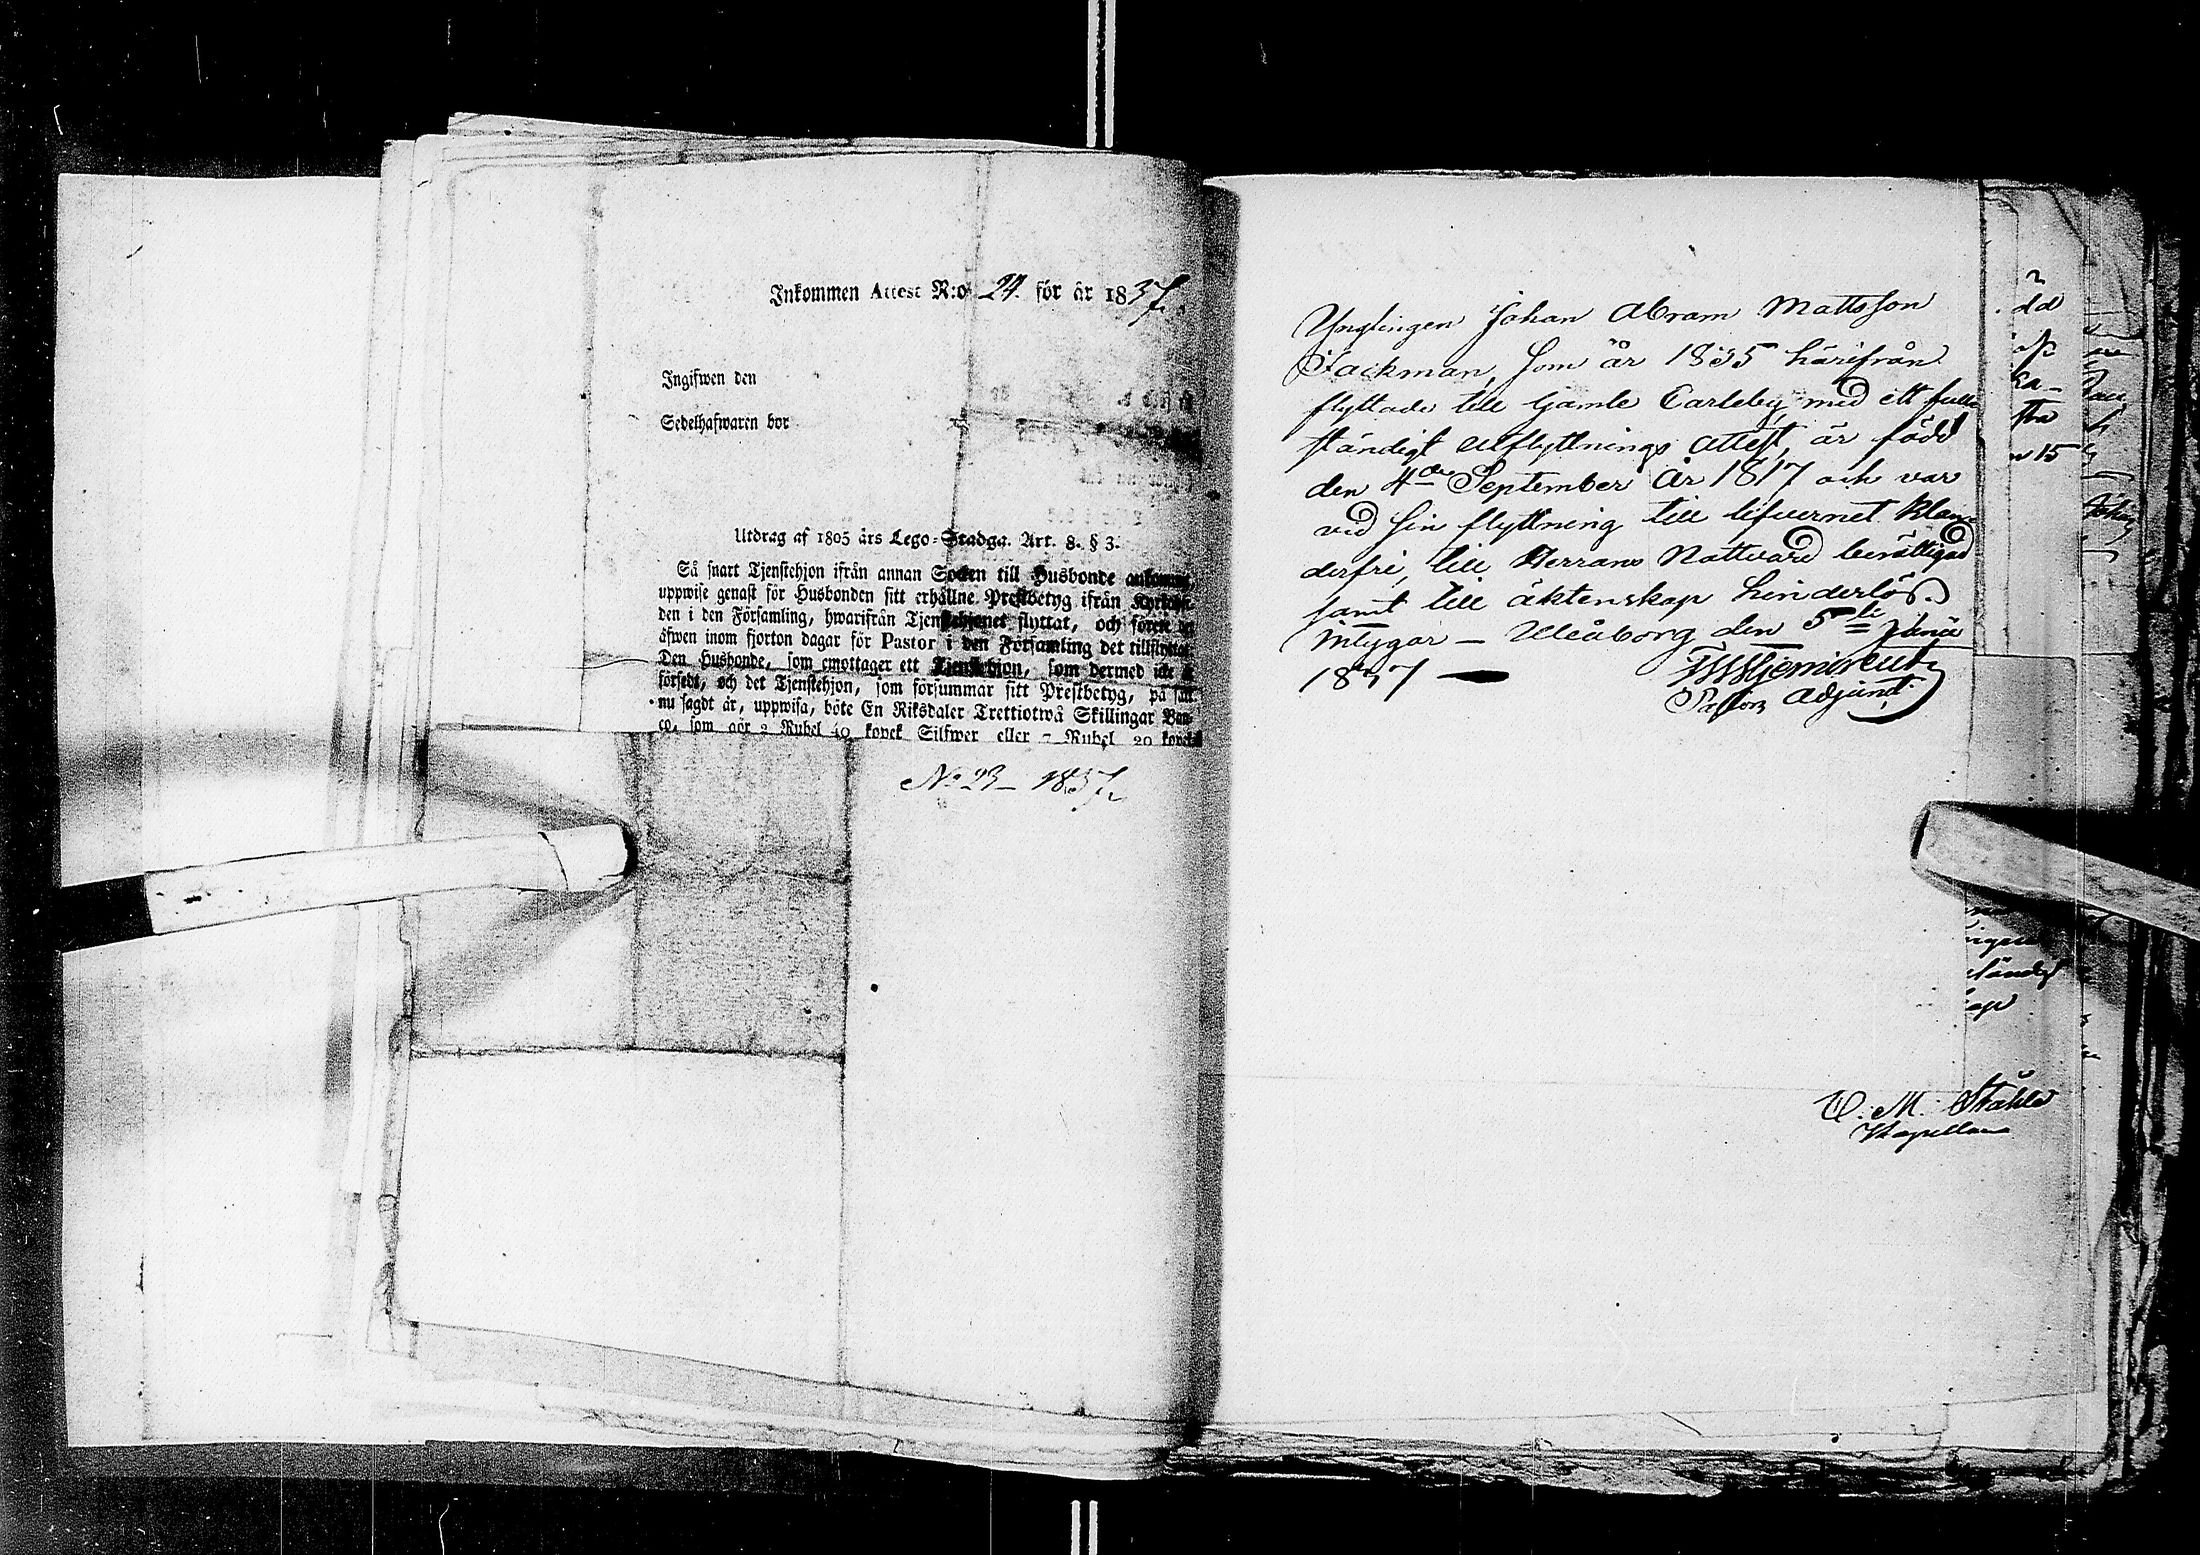 Inkommen Attest N:o 24. för år 1837.
Ingifwen den
Sedelhafwaren bor
Utdrag af 1805 års Lego-Stadga. Art. 8. § 3.
Så snart Tjenstehjon ifrån annan Socken till Husbonde
uppwise genast för Husbonden sitt erhållne Prestbetyg ifrån
den i den Församling, hwarifrån Tjenstehjonet flyttat, och
äfwen inom fjorton dagar för Pastor i den Församling det
Den Husbonde, som emottager ett Tjenstehjon, som dermed
försedt, och det Tjenstehjon, som försummar sitt Prestbetyg, på sätt
nu sagdt är, uppwisa, böte En Riksdaler Trettiotwå Skillingar Ban-
co, som gör 2 Rubel 40 kopek Silfwer eller 7 Rubel 20 kopek
No 23 - 1837.
Ynglingen Johan Abram Mattsson
Tackman, som år 1835 härifrån
flyttade till Gamle Carleby med ett full
ständigt utflyttnings attest, är född
den 4de September År 1817 och var
vid sin flyttning till lefvernet klan
derfri, till Herrans Nattvard berättigad
samt till äktenskap hinderlös.
Intygar - Uleåborg den 5te
1837 —
Pastors Adjunct
dd
ka-
fta
15
ständigt
C. M. Ståhle
Kapellan